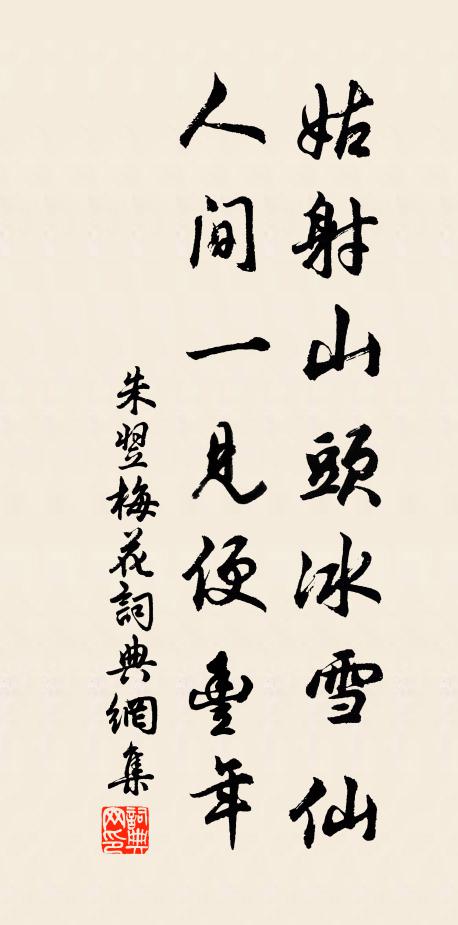 姑射山頭冰雪仙
人間一見便豐年
朱翌梅花詞典網集
詞典网印